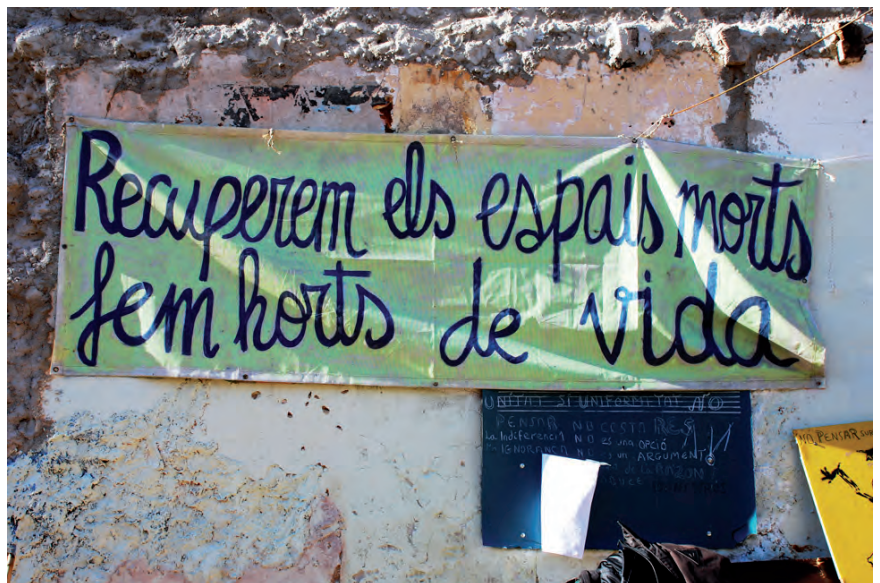 Recuperem els espais morts
fem horts de vida
UNITAT SI UNIFORMITAT NO
PENSAR NO COSTA RES
La Indiferencia NO es una OPCIÓ
IGNORANCA NO es un ARGUMENT
de la RAZON
PENSAR